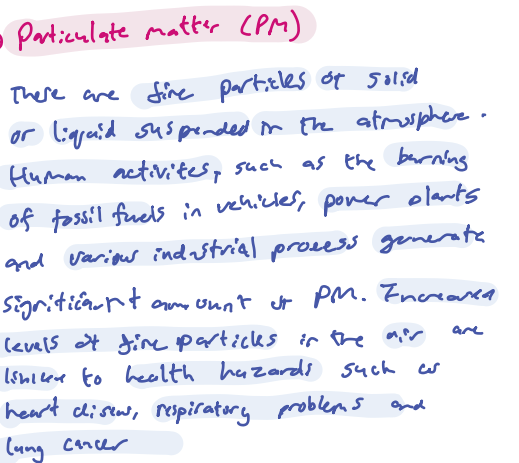 Particulate matter (PM)
These are fine particles of solid
or liquid suspended in the atmosphere.
Human activites, such as the burning
of fossil fuels in vehicles, power plants
and various industrial process generate
significant amount of PM. Increased
levels of fine particles in the air are
linked to health hazards such as
heart diseas, respiratory problems and
lung cancer